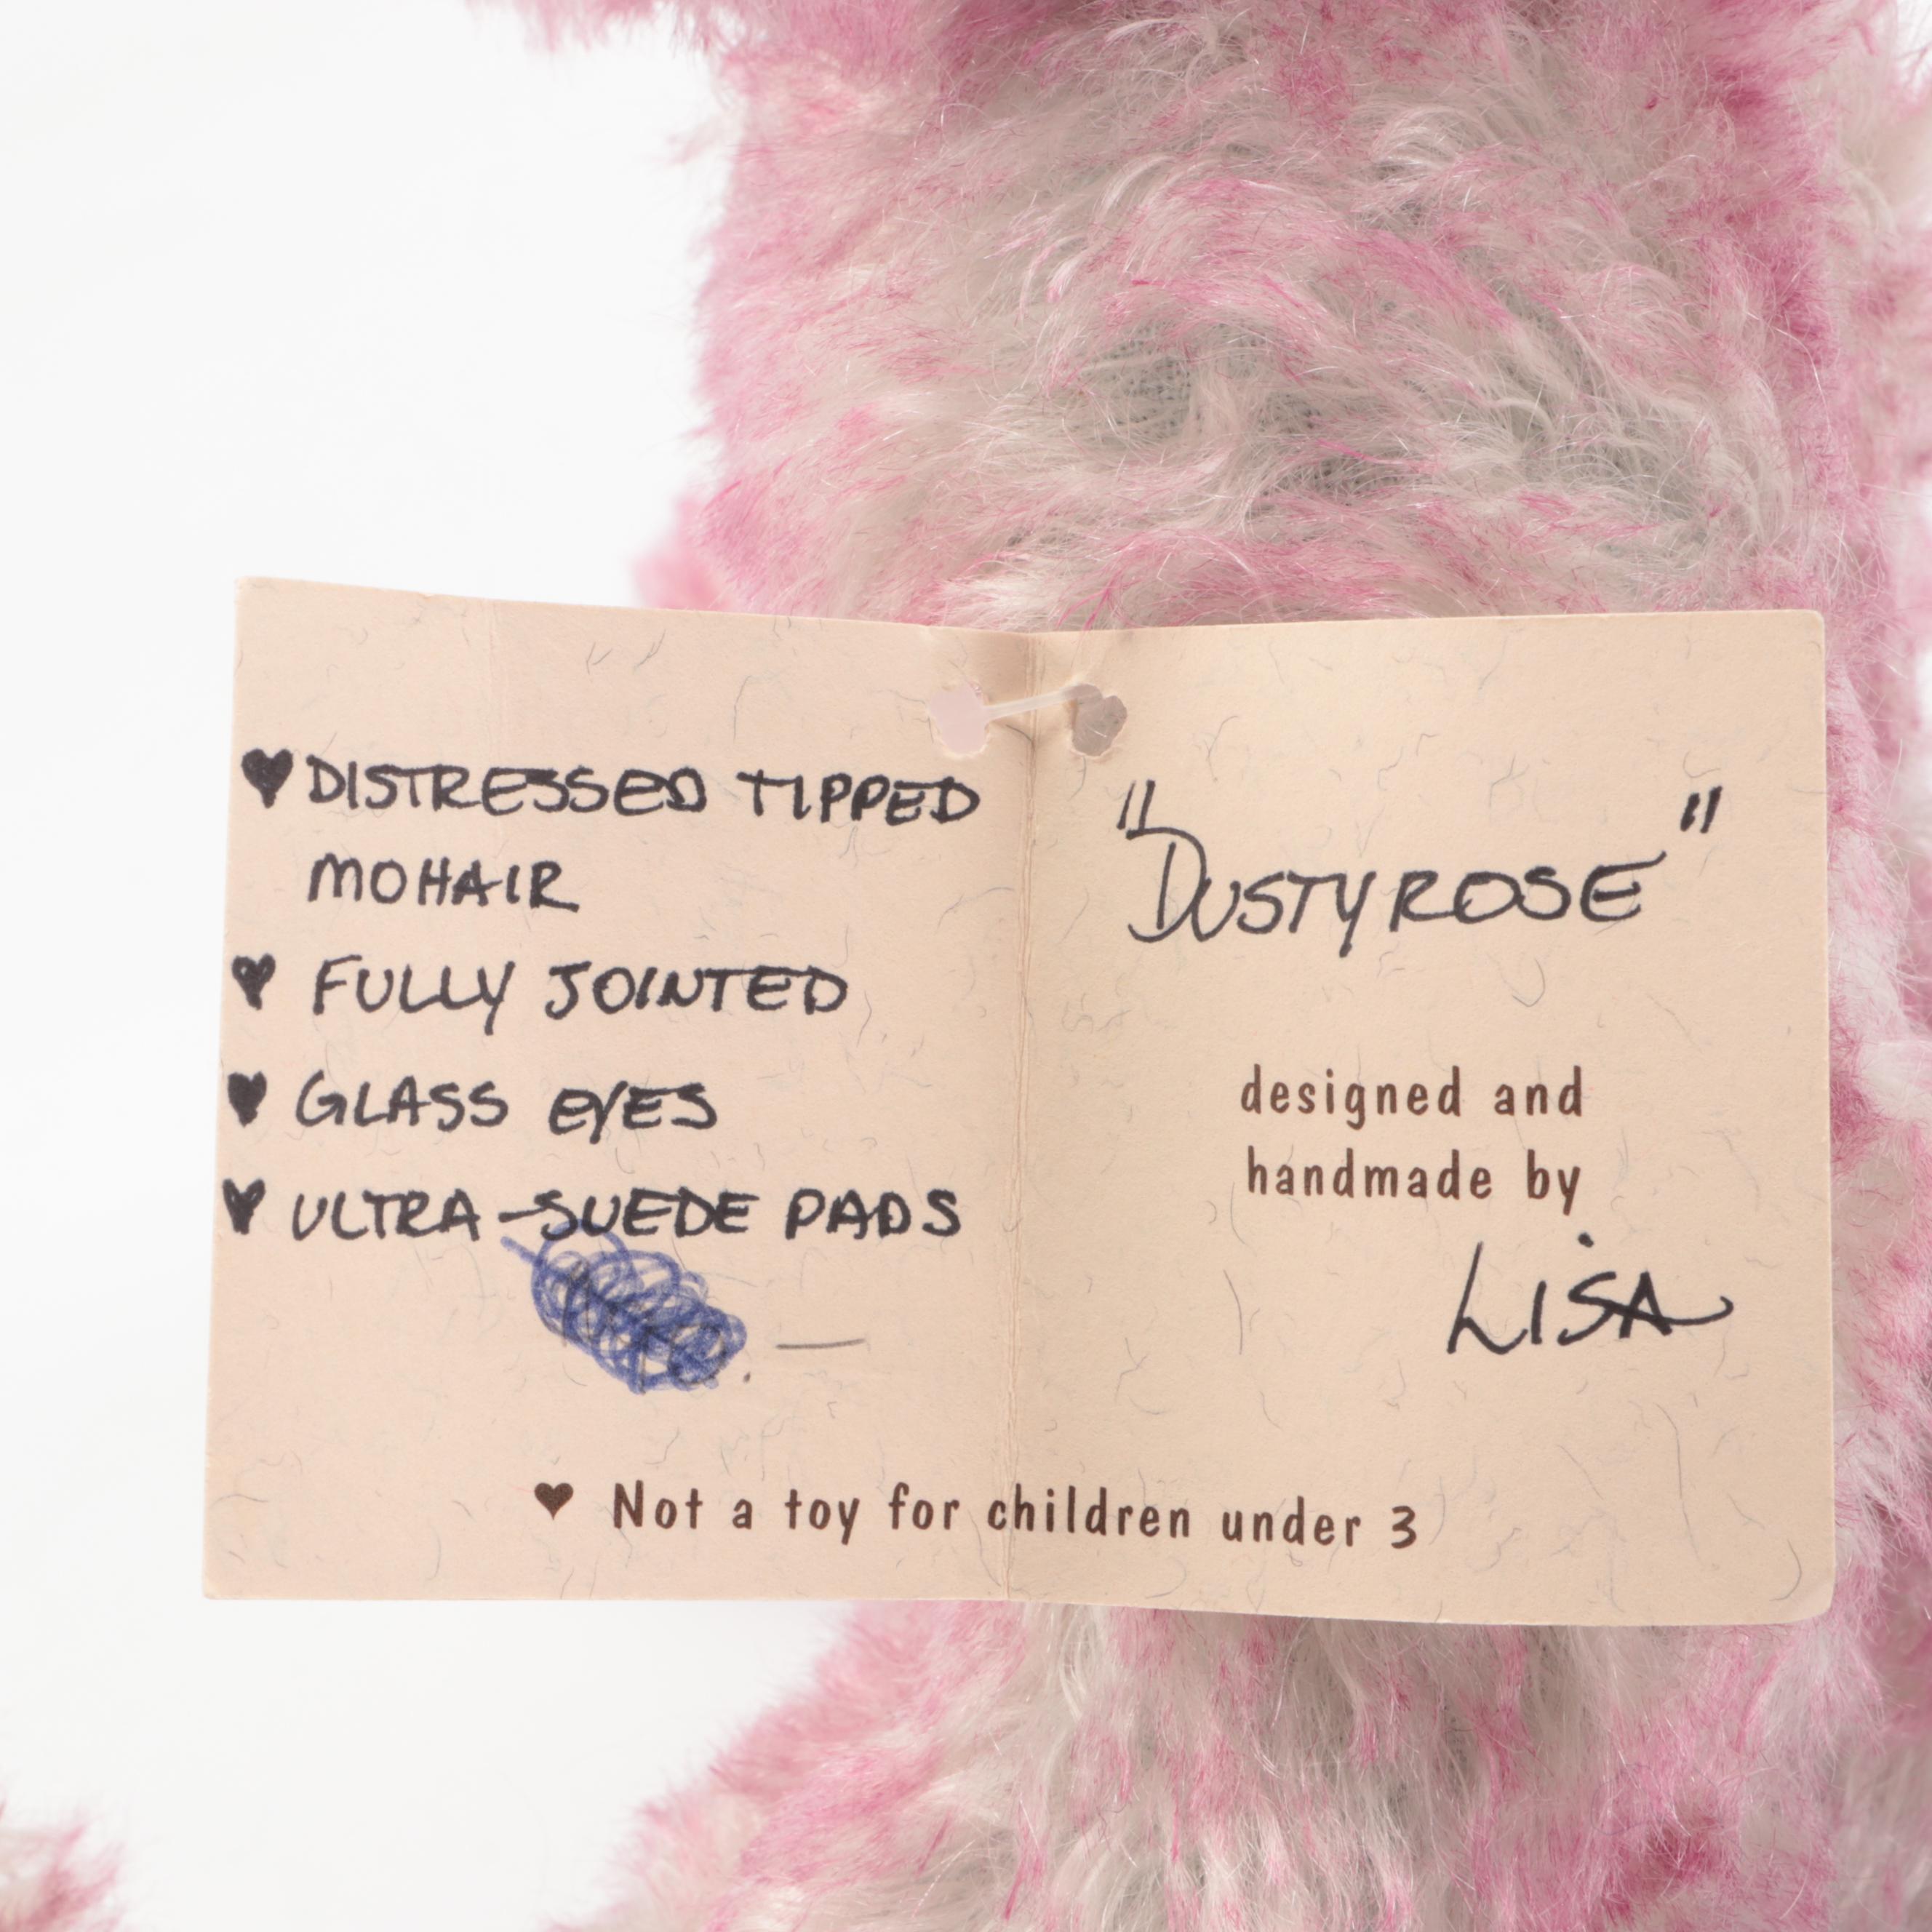 ♥ DISTRESSED TIPPED
MOHAIR
♥ FULLY JOINTED
♥ GLASS EYES
♥ ULTRA-SUEDE PADS
"DUSTY ROSE"
designed and
handmade by
LISA
♥ Not a toy for children under 3